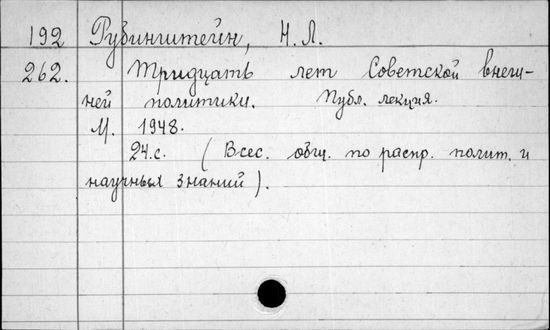 192 Рубинштейн, Н. Л.
262. Тридцать лет Советской внеш-
ней политики. Публ. лекция.
М. 1948.
24.с. (Всес. общ. по распр. полит. и
научных знаний).